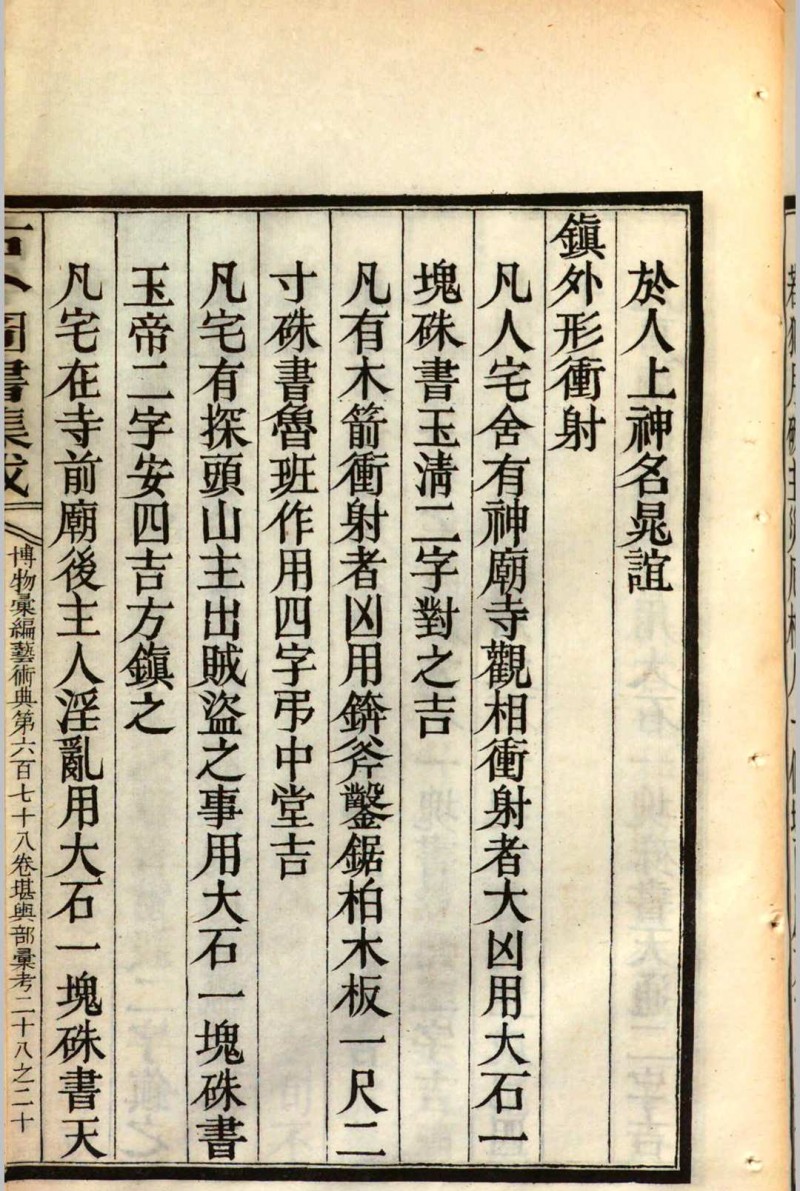 於人上神名晁誼
鎮外形衝射
凡人宅舍有神廟寺觀相衝射者大凶用大石一
塊硃書玉清二字對之吉
凡有木箭衝射者凶用錛斧鑿鋸柏木板一尺二
寸硃書魯班作用四字弔中堂吉
凡宅有探頭山主出賊盜之事用大石一塊硃書
玉帝二字安四吉方鎮之
凡宅在寺前廟後主人淫亂用大石一塊硃書天
圖書集成
博物彙編藝術典第六百七十八卷堪輿部彙考二十八之二十